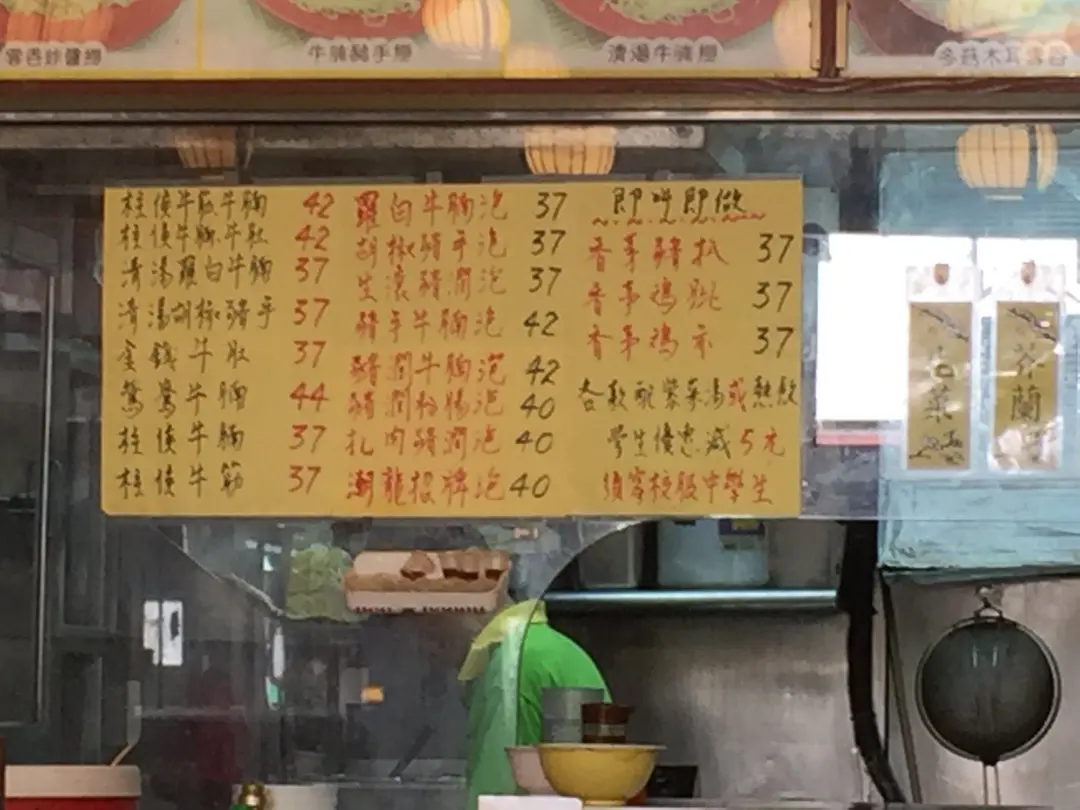 牛腩撈手麵
清湯牛腩麵
柱侯牛筋牛腩 42
柱侯牛腩牛肚 42
清湯蘿白牛腩 37
清湯胡椒豬手 37
金錢牛肚 37
鴛鴦牛腩 44
柱侯牛腩 37
柱侯牛筋 37
羅白牛腩泡 37
胡椒豬手泡 37
生滾豬潤泡 37
豬手牛腩泡 42
豬潤牛腩泡 42
豬潤粉腸泡 40
扎肉豬潤泡 40
潮龍招牌泡 40
即叫即做
香茅豬扒 37
香茅鸡脾 37
香茅鸡 37
各款配紫菜湯或熱飲
學生優惠減5元
須穿校服中學生
菜
芥蘭